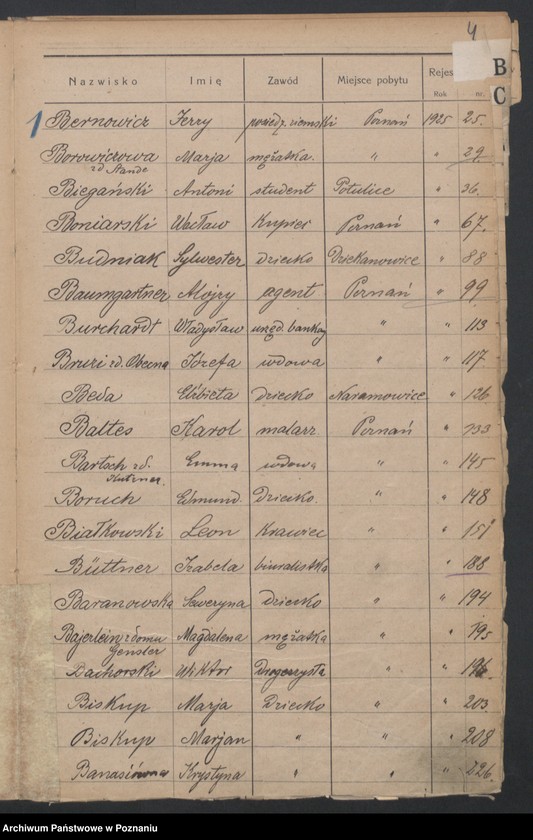 4
B
C
Nazwisko Imię Zawód Miejsce pobytu Rejes
Rok nr.
1 Bernowicz Jerry posiedz. ziemski Poznań 1925 25.
Borowiczowa Marja mężatka. " " 29.
zd Stande
Biegański Antoni student Potulice " 36.
Boniarski Wacław Kupiec Poznań " 67.
Budniak Sylwester dziecko Dziekanowice " 88
Baumgartner Mojry agent Poznań " 99
Burchardt Władysław urzęd. bankowy " " 113
Bruzi zd. Obecna Józefa wdowa " " 117.
Beda Elżbieta dziecko Naramowice " 126
Baltes Karol malarz Poznań " 133
Bartsch zd. Emma wdowa " " 145
Kutzner.
Boruch Edmund. Dziecko. " " 148
Białkowski Leon Krawiec " " 151
Büttner Izabela biuralistka " " 188
Baranowska Seweryna dziecko " " 194
Bajerlein z domu Magdalena mężatka " " 195
Gensler
Bachorski Wiktor Drogerzysta " " 196.
Biskup Marja Dziecko " " 203.
Biskup Marjan " " " 208
Banasiówna Krystyna " " " 226.
Archiwum Państwowe w Poznaniu